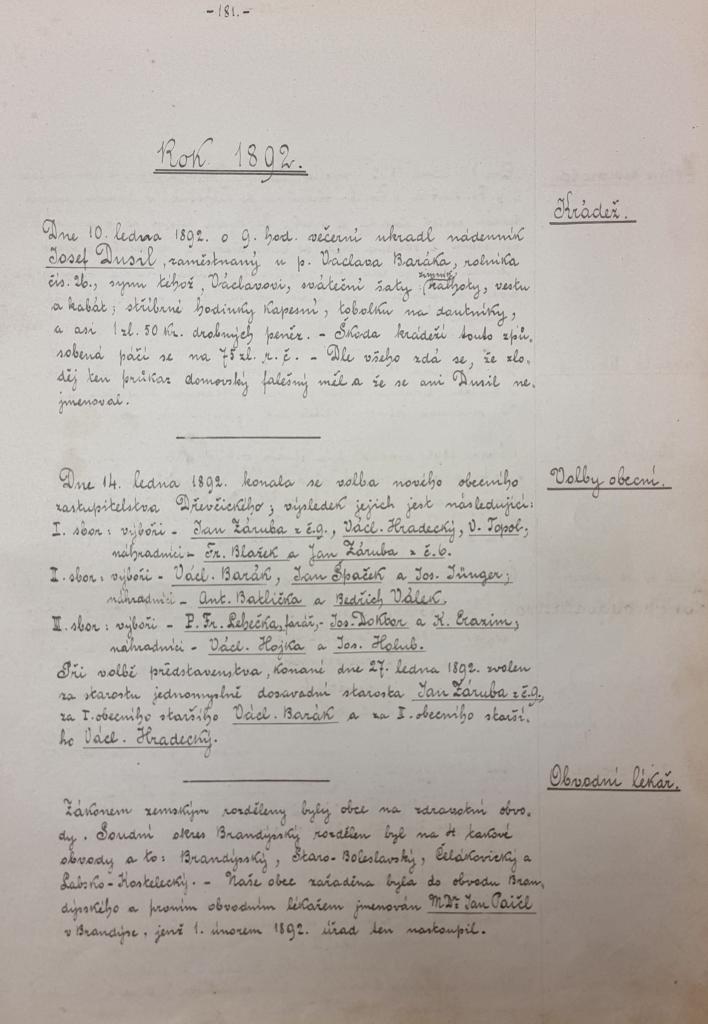 - 181. -
Rok 1892.
Krádež.
Dne 10. ledna 1892. o 9. hod. večerní ukradl nádenník
Josef Dusil, zaměstnaný u p. Václava Baráka, rolníka
čís. 26., synu téhož, Václavovi, sváteční šaty (zimník, kalhoty, vestu
a kabát; stříbrné hodinky kapesní, tobolku na doutníky,
a asi 1 zl. 50 Kr. drobných peněz. - Škoda krádeží touto způ-
sobená páčí se na 75 zl. r. č. - Dle všeho zdá se, že zlo-
děj ten průkaz domovský falešný měl a že se ani Dusil ne-
jmenoval.
Volby obecní.
Dne 14. ledna 1892. konala se volba nového obecního
zastupitelstva Dřevčického; výsledek jejich jest následující:
I. sbor: výboři - Jan Záruba z č. 9., Václ. Hradecký, V. Topol;
náhradníci - Fr. Blažek a Jan Záruba z č. 6.
II. sbor: výboři - Václ. Barák, Jan Špaček a Jos. Jünger;
náhradníci - Ant. Batlička a Bedřich Válek.
III. sbor: výboři - P. Fr. Lehečka, farář, - Jos. Doktor a K. Erazim;
náhradníci - Václ. Hojka a Jos. Holub.
Při volbě představenstva, konané dne 27. ledna 1892. zvolen
za starostu jednomyslně dosavadní starosta Jan Záruba z č. 9.,
za I. obecního staršího Václ. Barák a za II. obecního starší-
ho Václ. Hradecký.
Obvodní lékář.
Zákonem zemským rozděleny byly obce na zdravotní obvo-
dy. Soudní okres Brandýsský rozdělen byl na 4 takové
obvody a to: Brandýsský, Staro-Boleslavský, Čelákovický a
Labsko-Kostelecký. - Naše obec zařaděna byla do obvodu Bran-
dýsského a prvním obvodním lékařem jmenován MDr. Jan
v Brandýse, jenž 1. únorem 1892. úřad ten nastoupil.